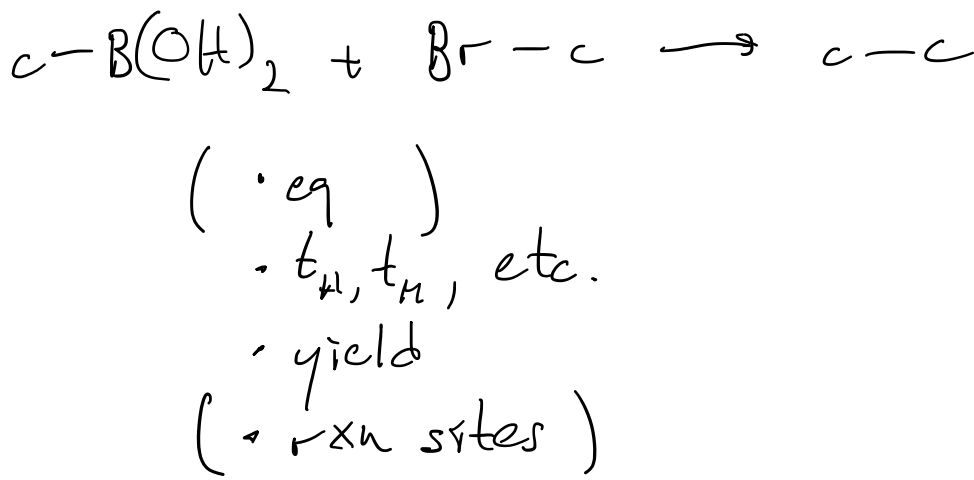 c-B(OH)₂ + Br-c → c-c
( • eq )
• t_H, t_M, etc.
• yield
( • rxn sites )